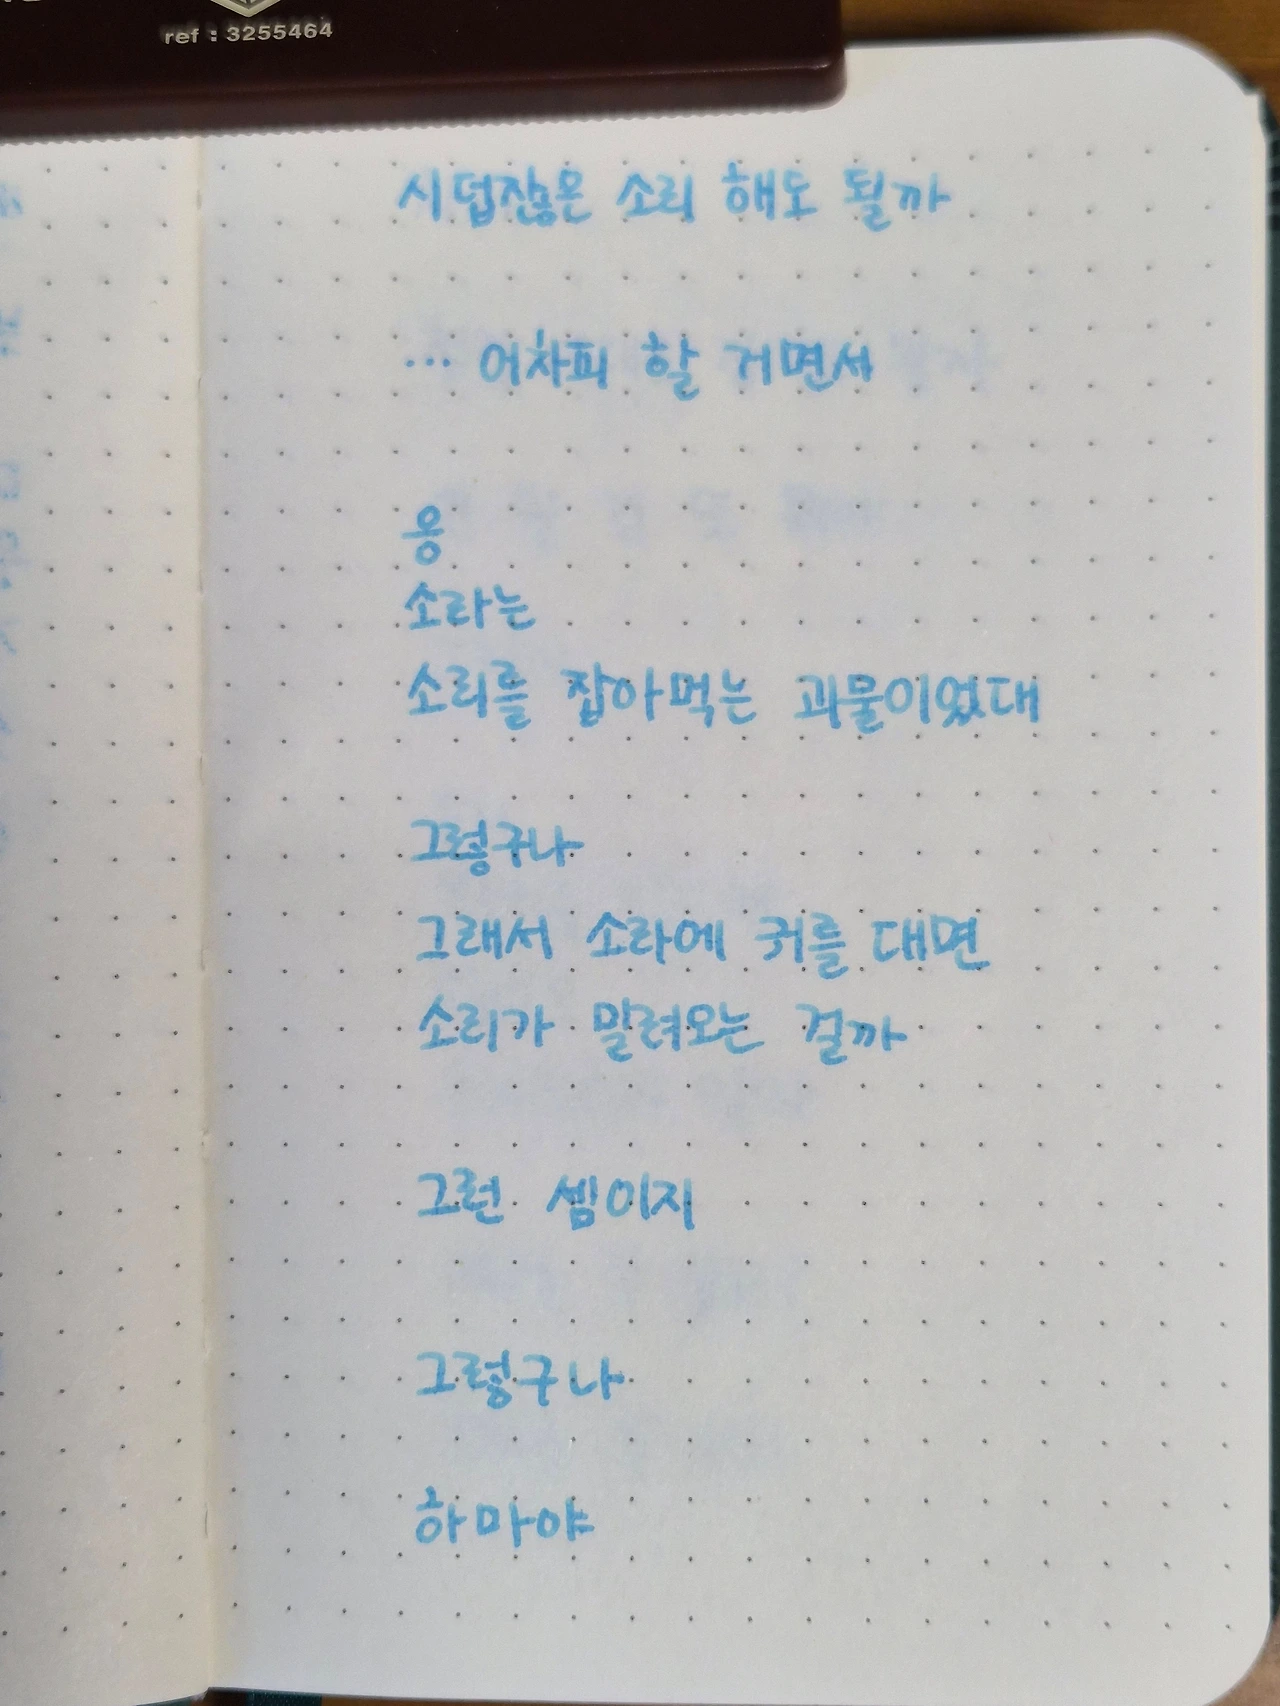 ref : 3255464
시덥잖은 소리 해도 될까
… 어차피 할 거면서
응
소라는
소리를 잡아먹는 괴물이었대
그렇구나
그래서 소라에 귀를 대면
소리가 말려오는 걸까
그런 셈이지
그렇구나
하마야